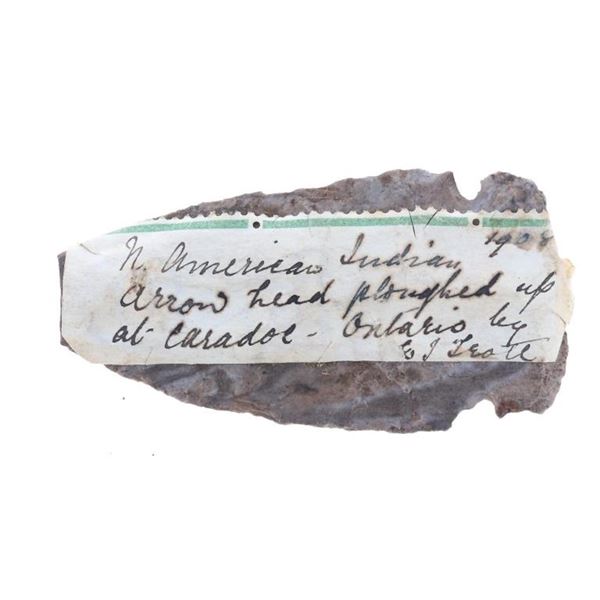 1908
N. American Indian
arrow head ploughed up
at Caradoc - Ontario by